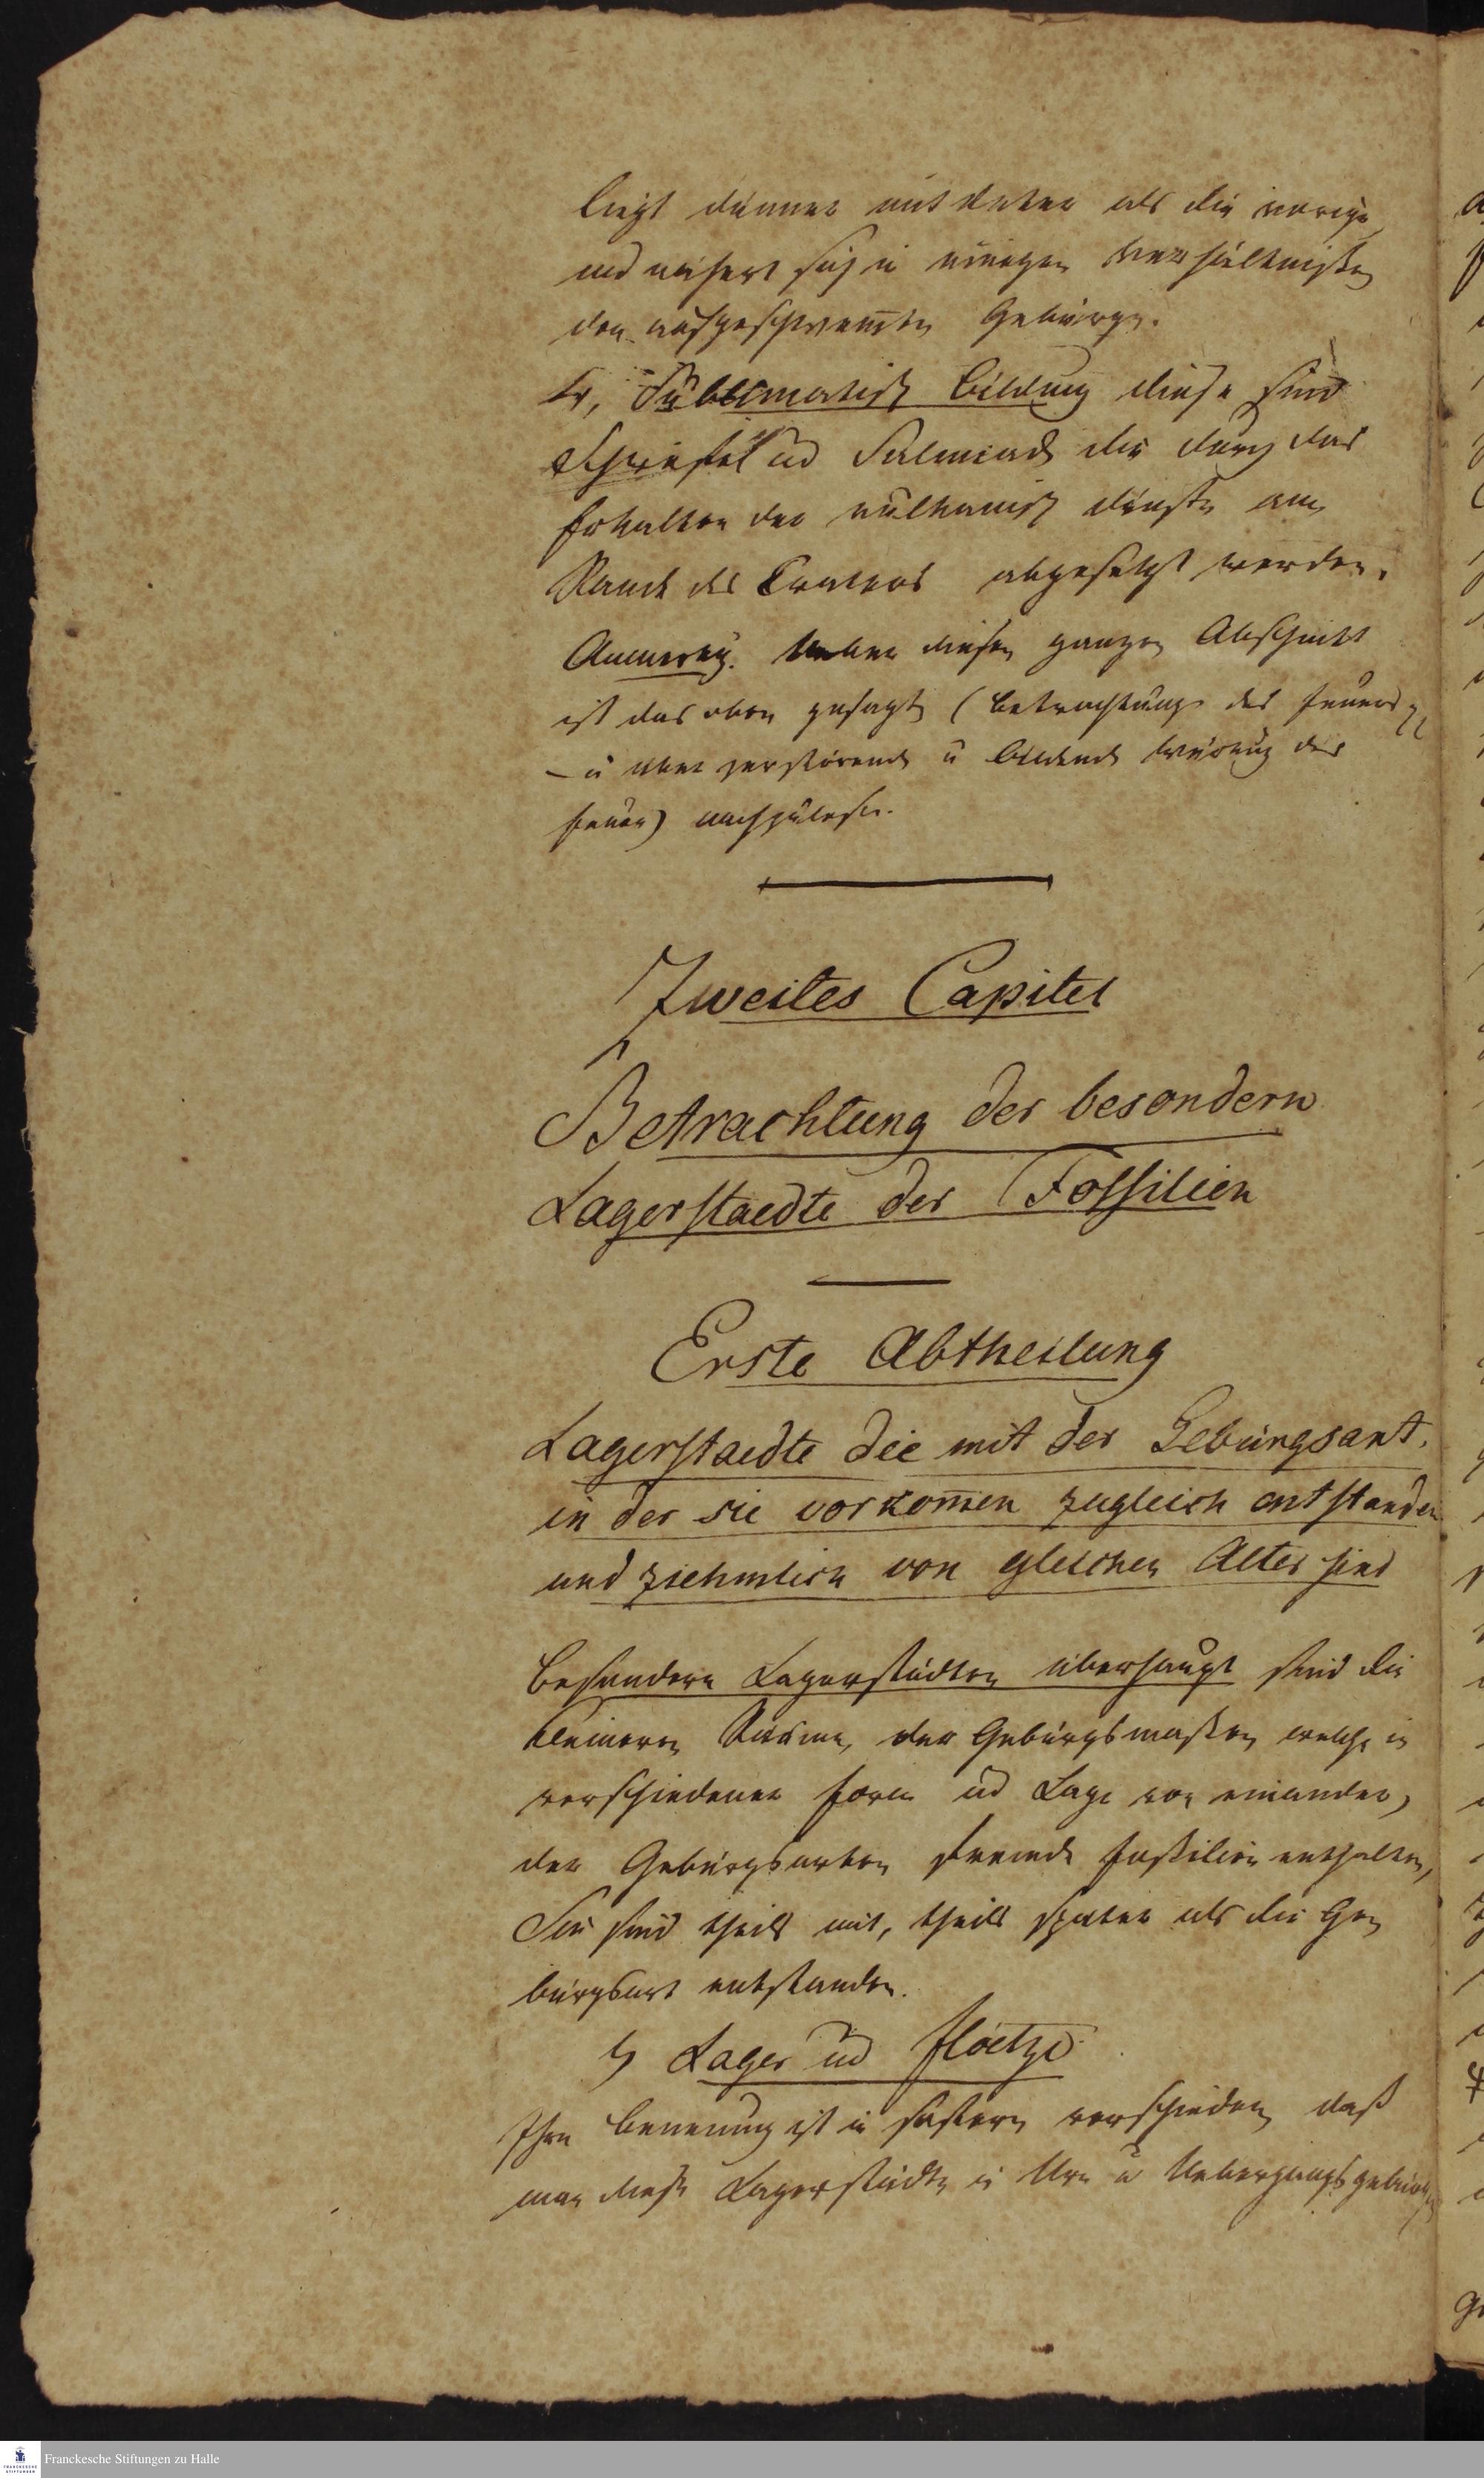 liegt dünner und lokerer als die vorige
und nähert sich in einigen Verhältnißen
den aufgeschwemten Gebürgen.
4, Sublimatisch Bildung diese sind
Schwefel und Salmiack die durch das
Erkalten der vulkanisch dünste am
Rande des Craters abgesetzt werden.
Anmerkg. Ueber diesen ganzen Abschnitt
ist das oben gesagte (Betrachtung des Feuers
– u über zerstörende u bildende Würkung des
Feuers) nachzulesen.
Zweites Capitel
Betrachtung der besondern
Lagerstaedte der Fossilien
Erste Abtheilung
Lagerstaedte die mit der Gebürgsart
in der sie vorkom̄en zugleich entstanden
und ziehmlich von gleichen Alter sind
Besondere Lagerstädten überhaupt sind die
kleinern Räume, der Gebürgsmaßen welche in
verschiedener Form und Lage von einander,
der Gebürgsarten fremde Foßilien enthalten,
Sie sind theils mit, theils später als die Ge
bürgsart entstanden.
Lager und Floetze
Ihre Benenung ist in sofern verschieden, daß
man diese Lagerstädte in Ur u Uebergangsgebürgen
Franckesche Stiftungen zu Halle